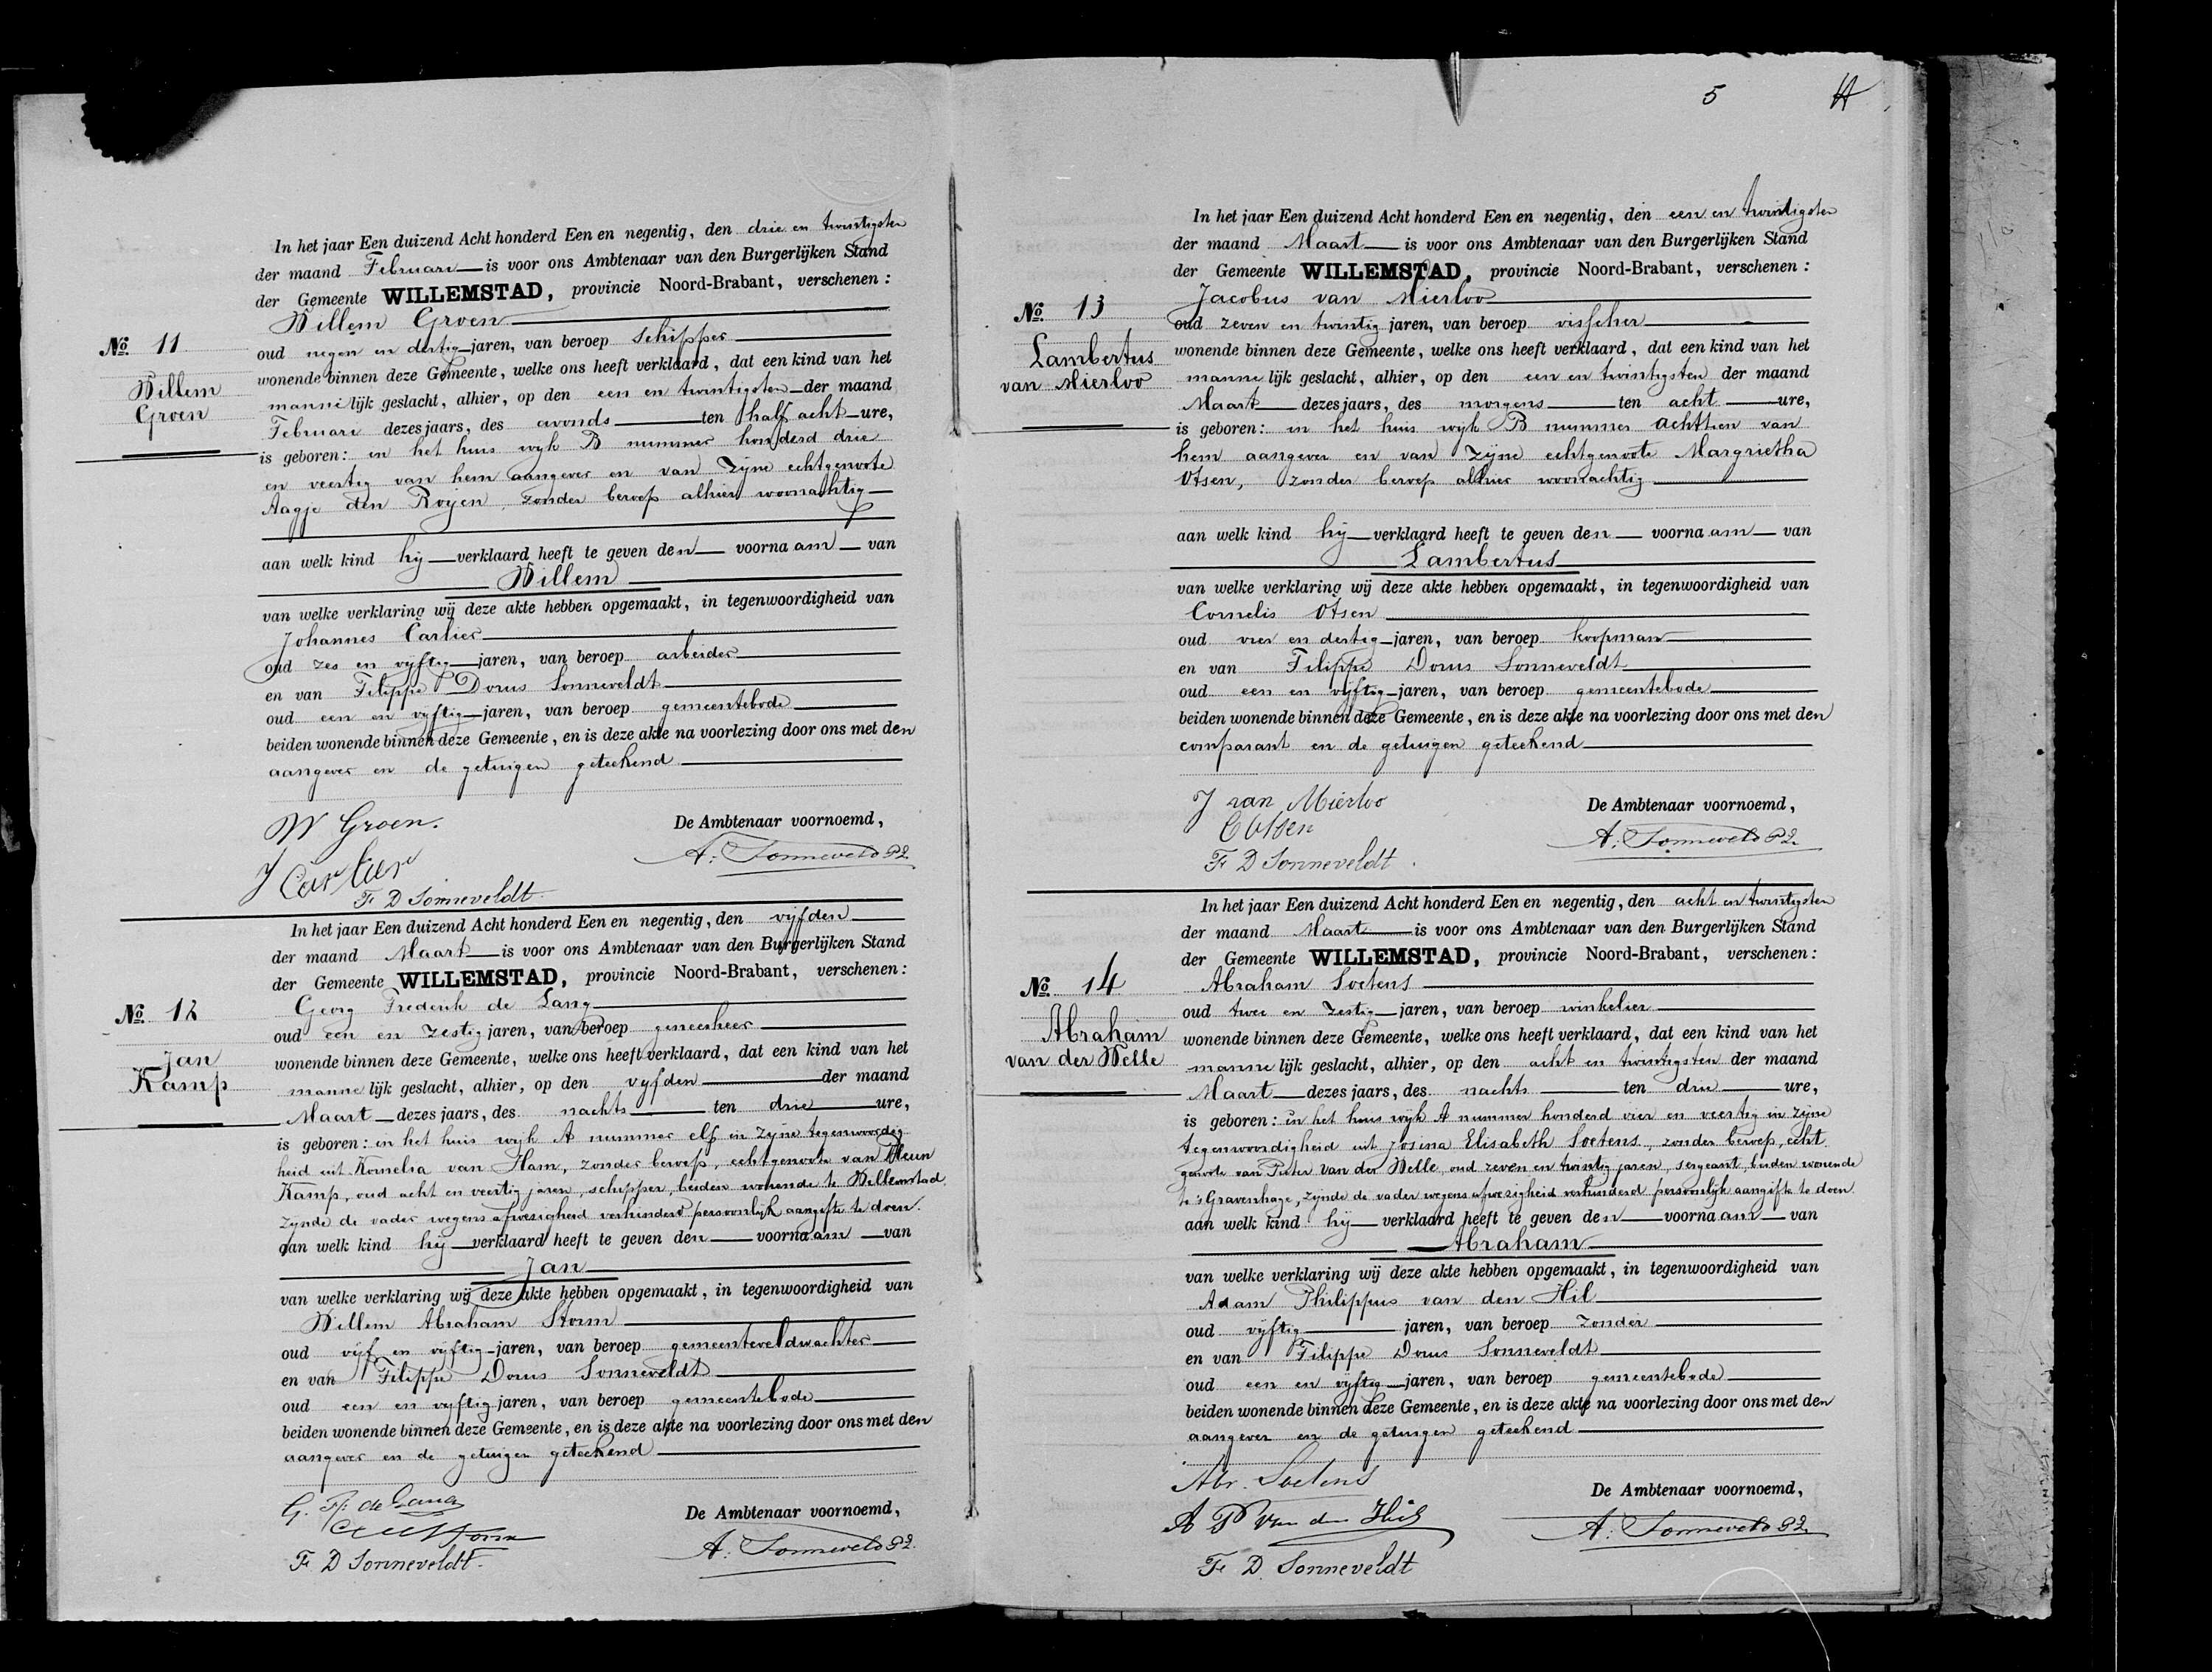 In het jaar Een duizend Acht honderd Een en negentig, den drie en twintigsten
der maand Februari is voor ons Ambtenaar van den Burgerlijken Stand
der Gemeente WILLEMSTAD, provincie Noord-Brabant, verschenen:
Willem Groen
oud negen en dertig jaren, van beroep schipper
wonende binnen deze Gemeente, welke ons heeft verklaard, dat een kind van het
mannelijk geslacht, alhier, op den een en twintigsten der maand
Februari dezes jaars, des avonds ten half acht ure,
is geboren: in het huis wijk B nummer honderd drie
en veertig van hem aangever en van zijne echtgenoote
Aagje den Rojen, zonder beroep alhier woonachtig
aan welk kind hij verklaard heeft te geven den voornaam van
Willem
van welke verklaring wij deze akte hebben opgemaakt, in tegenwoordigheid van
Johannes Carlier
oud zes en vijftig jaren, van beroep arbeider
en van Filippe Dorus Sonneveldt
oud een en vijftig jaren, van beroep gemeentebode
beiden wonende binnen deze Gemeente, en is deze akte na voorlezing door ons met den
aangever en de getuigen geteekend
No. 11
Willem
Groen
W Groen.
De Ambtenaar voornoemd,
J Carlier
A. Sonneveld
F. D Sonneveldt
In het jaar Een duizend Acht honderd Een en negentig, den vijfden
der maand Maart is voor ons Ambtenaar van den Burgerlijken Stand
der Gemeente WILLEMSTAD, provincie Noord-Brabant, verschenen:
Georg Frederik de Lang
oud een en zestig jaren, van beroep geneesheer
wonende binnen deze Gemeente, welke ons heeft verklaard, dat een kind van het
mannelijk geslacht, alhier, op den vijfden der maand
Maart dezes jaars, des nachts ten drie ure,
is geboren: in het huis wijk A nummer elf in zijne tegenwoordig
heid uit Kornelia van Ham, zonder beroep, echtgenoote van Teun
Kamp, oud acht en veertig jaren, schipper, beiden wonende te Willemstad,
zijnde de vader wegens afwezigheid verhinderd persoonlijk aangifte te doen.
aan welk kind hij verklaard heeft te geven den voornaam van
Jan
van welke verklaring wij deze akte hebben opgemaakt, in tegenwoordigheid van
Willem Abraham Storm
oud vijf en vijftig jaren, van beroep gemeenteveldwachter
en van Filippe Dorus Sonneveldt
oud een en vijftig jaren, van beroep gemeentebode
beiden wonende binnen deze Gemeente, en is deze akte na voorlezing door ons met den
aangever en de getuigen geteekend
No. 12
Jan
Kamp
G. Fr. de Lang
De Ambtenaar voornoemd,
Storm
A. Sonneveld
F. D Sonneveldt.
5
In het jaar Een duizend Acht honderd Een en negentig, den een en twintigsten
der maand Maart is voor ons Ambtenaar van den Burgerlijken Stand
der Gemeente WILLEMSTAD, provincie Noord-Brabant, verschenen:
Jacobus van Mierloo
oud zeven en twintig jaren, van beroep visscher
wonende binnen deze Gemeente, welke ons heeft verklaard, dat een kind van het
mannelijk geslacht, alhier, op den een en twintigsten der maand
Maart dezes jaars, des morgens ten acht ure,
is geboren: in het huis wijk B nummer achttien van
hem aangever en van zijne echtgenoote Margrietha
Otsen, zonder beroep alhier woonachtig
aan welk kind hij verklaard heeft te geven den voornaam van
Lambertus
van welke verklaring wij deze akte hebben opgemaakt, in tegenwoordigheid van
Cornelis Otsen
oud vier en dertig jaren, van beroep koopman
en van Filippe Dorus Sonneveldt
oud een en vijftig jaren, van beroep gemeentebode
beiden wonende binnen deze Gemeente, en is deze akte na voorlezing door ons met den
comparant en de getuigen geteekend
No. 13
Lambertus
van Mierloo
J van Mierloo
De Ambtenaar voornoemd,
C Otsen
A. Sonneveld
F. D Sonneveldt.
In het jaar Een duizend Acht honderd Een en negentig, den acht en twintigsten
der maand Maart is voor ons Ambtenaar van den Burgerlijken Stand
der Gemeente WILLEMSTAD, provincie Noord-Brabant, verschenen:
Abraham Soetens
oud twee en zestig jaren, van beroep winkelier
wonende binnen deze Gemeente, welke ons heeft verklaard, dat een kind van het
mannelijk geslacht, alhier, op den acht en twintigsten der maand
Maart dezes jaars, des nachts ten drie ure,
is geboren: in het huis wijk A nummer honderd vier en veertig in zijne
tegenwoordigheid uit Josina Elisabeth Soetens, zonder beroep, echt
genoote van Pieter van der Welle, oud zeven en twintig jaren, sergeant, beiden wonende
te 's Gravenhage, zijnde de vader wegens afwezigheid verhinderd persoonlijk aangifte te doen.
aan welk kind hij verklaard heeft te geven den voornaam van
Abraham
van welke verklaring wij deze akte hebben opgemaakt, in tegenwoordigheid van
Adam Philippus van den Hil
oud vijftig jaren, van beroep zonder
en van Filippe Dorus Sonneveldt
oud een en vijftig jaren, van beroep gemeentebode
beiden wonende binnen deze Gemeente, en is deze akte na voorlezing door ons met den
aangever en de getuigen geteekend
No. 14
Abraham
van der Welle
Abr. Soetens
De Ambtenaar voornoemd,
A P van den Hil
A. Sonneveld
F. D. Sonneveldt